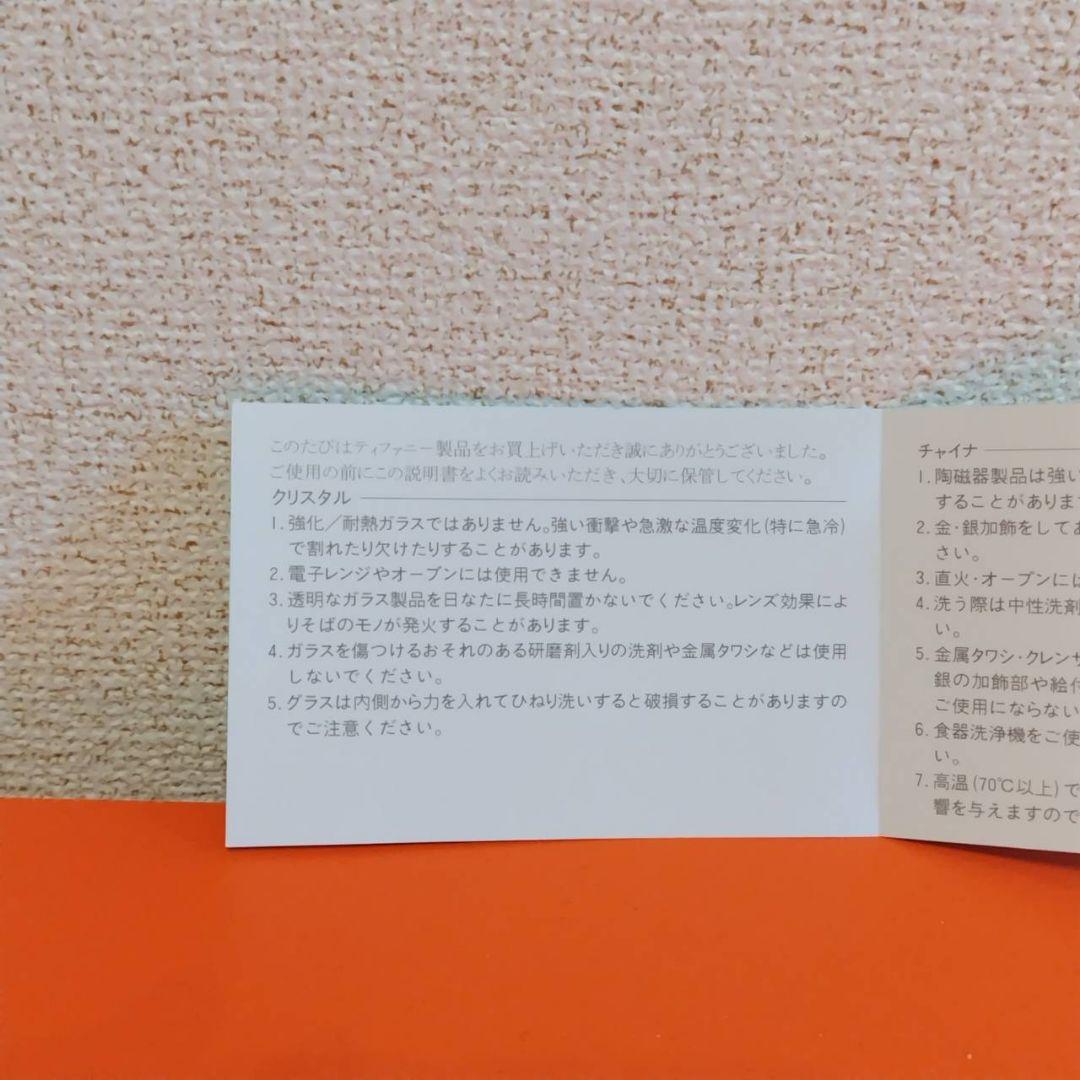 このたびはティファニー製品をお買上げいただき誠にありがとうございました。
ご使用の前にこの説明書をよくお読みいただき、大切に保管してください。
クリスタル
1. 強化／耐熱ガラスではありません。強い衝撃や急激な温度変化(特に急冷)
で割れたり欠けたりすることがあります。
2. 電子レンジやオーブンには使用できません。
3. 透明なガラス製品を日なたに長時間置かないでください。レンズ効果によ
りそばのモノが発火することがあります。
4. ガラスを傷つけるおそれのある研磨剤入りの洗剤や金属タワシなどは使用
しないでください。
5. グラスは内側から力を入れてひねり洗いすると破損することがありますの
でご注意ください。
チャイナ
1. 陶磁器製品は強い
することがありま
2. 金・銀加飾をして
さい。
3. 直火・オーブンに
4. 洗う際は中性洗剤
い。
5. 金属タワシ・クレン
銀の加飾部や絵付
ご使用にならない
6. 食器洗浄機をご使
い。
7. 高温(70℃以上)で
響を与えますので